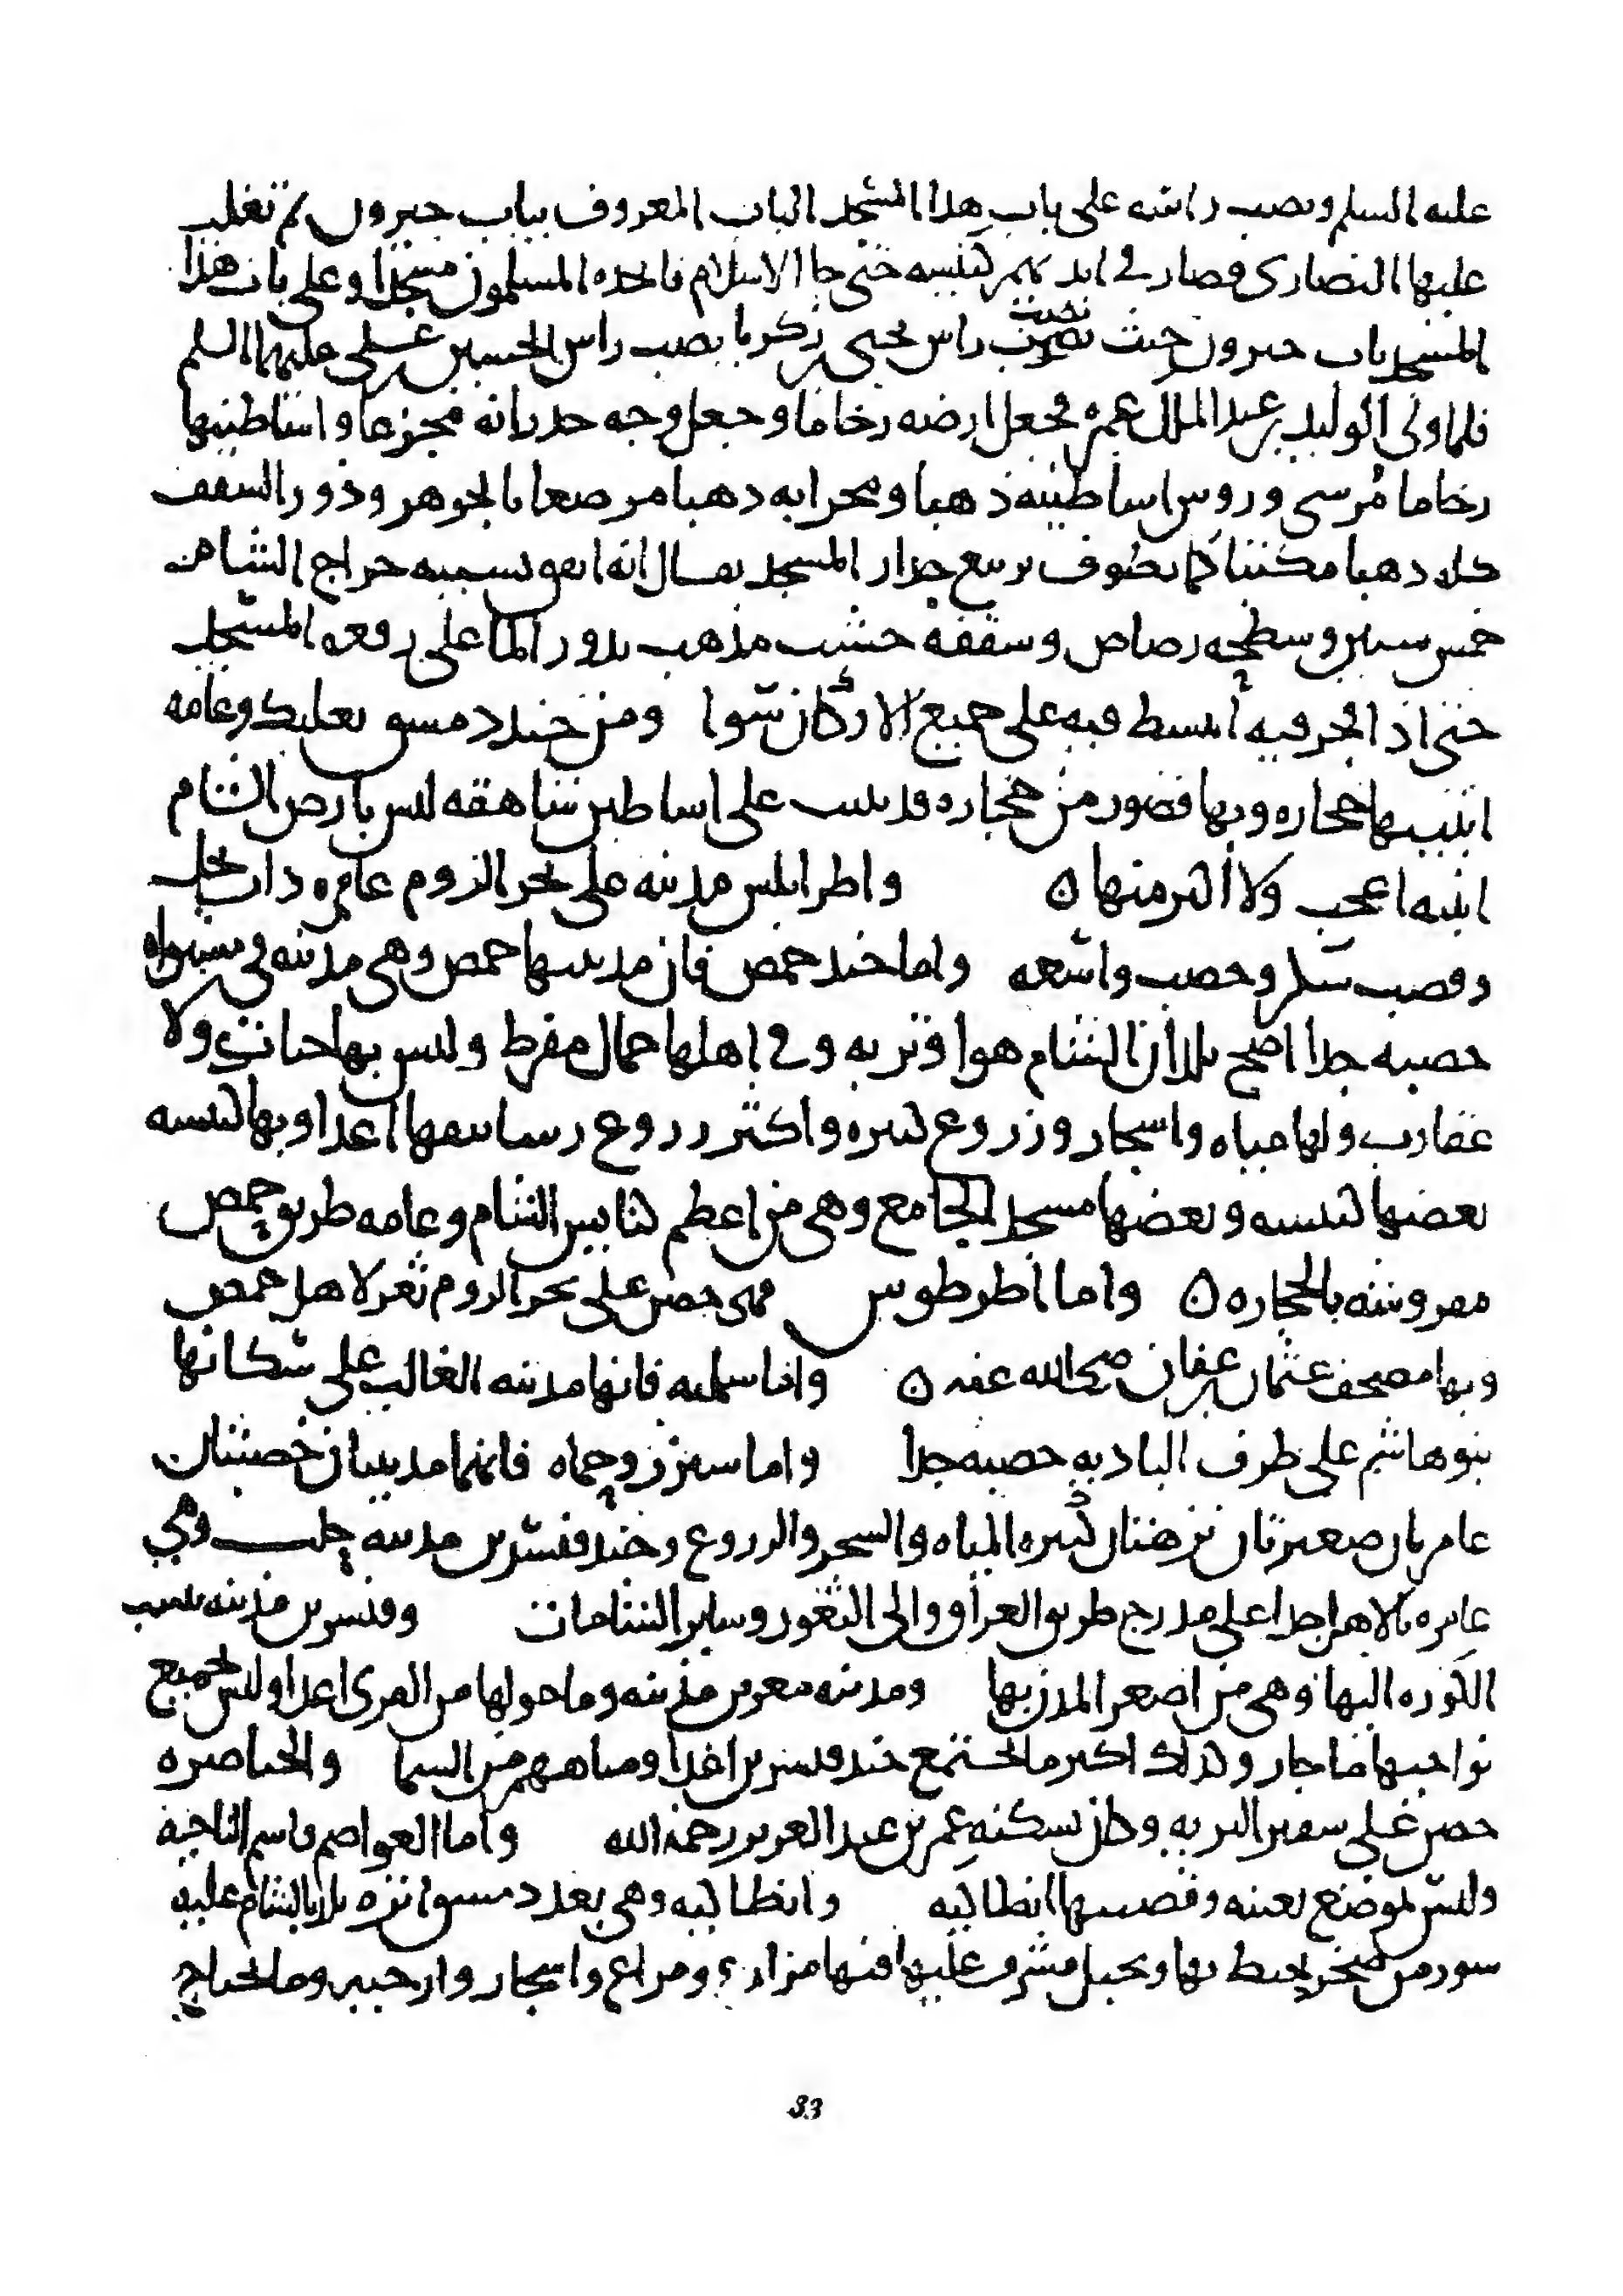 عليه السلم ونصب راسه على باب هذا المسجد الباب المعروف بباب جيرون ثم تغلب
عليها النصارى فصار في ايديهم كنيسه حتى جا الاسلام فاتخذه المسلمون مسجدا وعلى باب هذا
المسجد باب جيرون حيث نصب راس يحيى بن زكريا نصب راس الحسين بن علي عليهما السلم
فلما ولي الوليد بن عبد الملك عمره فجعل ارضه رخاما وجعل وجه جدرانه مجزعا واساطينها
رخاما مرسى وروس اساطينه ذهبا ومحرابه ذهبا مرصعا بالجوهر وذور السقف
كله ذهبا مكتبا كما يطوف تربيع جدار المسجد يقال انه انفق بسببه خراج الشام
خمس سنين وسطحه رصاص وسقفه خشب مذهب يدور الما على رقعه المسجد
حتى اذا فجر فيه انبسط فيه على جميع الاركان سوا ومن جند دمشق بعلبك وعامه
ابنيتها حجاره وبها قصور من حجاره قد بنيت على اساطين شاهقه ليس بارض الشام
ابنيه اعجب ولا اكبر منها ه واطرابلس مدينه على بحر الروم عامره ذات نخل
وقصب سكر وخصب واسعه واما جند حمص فان مدينتها حمص وهي مدينه في مستواه
خصبه جدا اصح بلدان الشام هوا وتربه وفي اهلها جمال مفرط وليس بها حيات ولا
عقارب ولها مياه واشجار وزروع كثيره واكثر زروع رساتيقها اعذا وبها كنيسه
بعضها كنيسه وبعضها مسجد الجامع وهي من اعظم كنايس الشام وعامه طريق حمص
مفروشه بالحجاره ه واما اطرطوس فهي حصن على بحر الروم ثغر لاهل حمص
وبها مصحف عثمان بن عفان رضي الله عنه ه واما سلميه فانها مدينه الغالب على سكانها
بنو هاشم على طرف الباديه خصبه جدا واما سيزر وحماه فانهما مدينتان خصبتان
عامرتان صغيرتان نزهتان كثيره المياه والشجر والزروع وجند قنسرين مدينه حلب وهي
عامره بالاهل جدا على مدرج طريق العراق والى الثغور وساير الشامات وقنسرين مدينه تنسب
الكوره اليها وهي من اصغر المدن بها ومدينه معرين مدينه وما حولها من القرى اعذا وليس بجميع
نواحيها ما جار وكذلك اكبر ما يجتمع جند قنسرين اعذا ومياههم من السما والخناصره
حصن على سفير البريه وكان يسكنه عمر بن عبد العزيز رحمه الله واما العواصم فاسم الناحيه
وليس بموضع بعينه وقصبتها انطاكيه وانطاكيه وهي بعد دمشق انزه بلد بالشام عليه
سور من صخر يحيط بها وبجبل مشرف عليها فيها مزارع ومراع واشجار وارحيه وما يحتاج
33